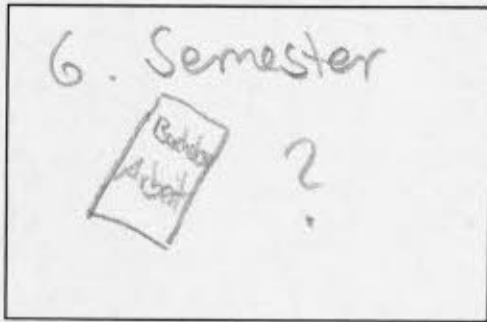 6. Semester
Bachelor
Arbeit
?